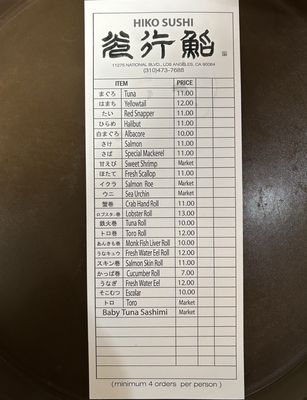 HIKO SUSHI
11275 NATIONAL BLVD., LOS ANGELES, CA 90064
(310)473-7688
ITEM PRICE
まぐろ Tuna 11.00
はまち Yellowtail 12.00
たい Red Snapper 11.00
ひらめ Halibut 11.00
白まぐろ Albacore 10.00
さけ Salmon 11.00
さば Special Mackerel 11.00
甘えび Sweet Shrimp Market
ほたて Fresh Scallop 11.00
イクラ Salmon Roe Market
ウニ Sea Urchin Market
蟹巻 Crab Hand Roll 11.00
ロブスター巻 Lobster Roll 13.00
鉄火巻 Tuna Roll 10.00
トロ巻 Toro Roll 12.00
あんきも巻 Monk Fish Liver Roll 10.00
うなキュウ Fresh Water Eel Roll 12.00
スキン巻 Salmon Skin Roll 11.00
かっぱ巻 Cucumber Roll 7.00
うなぎ Fresh Water Eel 12.00
そこむつ Escolar 10.00
トロ Toro Market
Baby Tuna Sashimi Market
(minimum 4 orders per person)